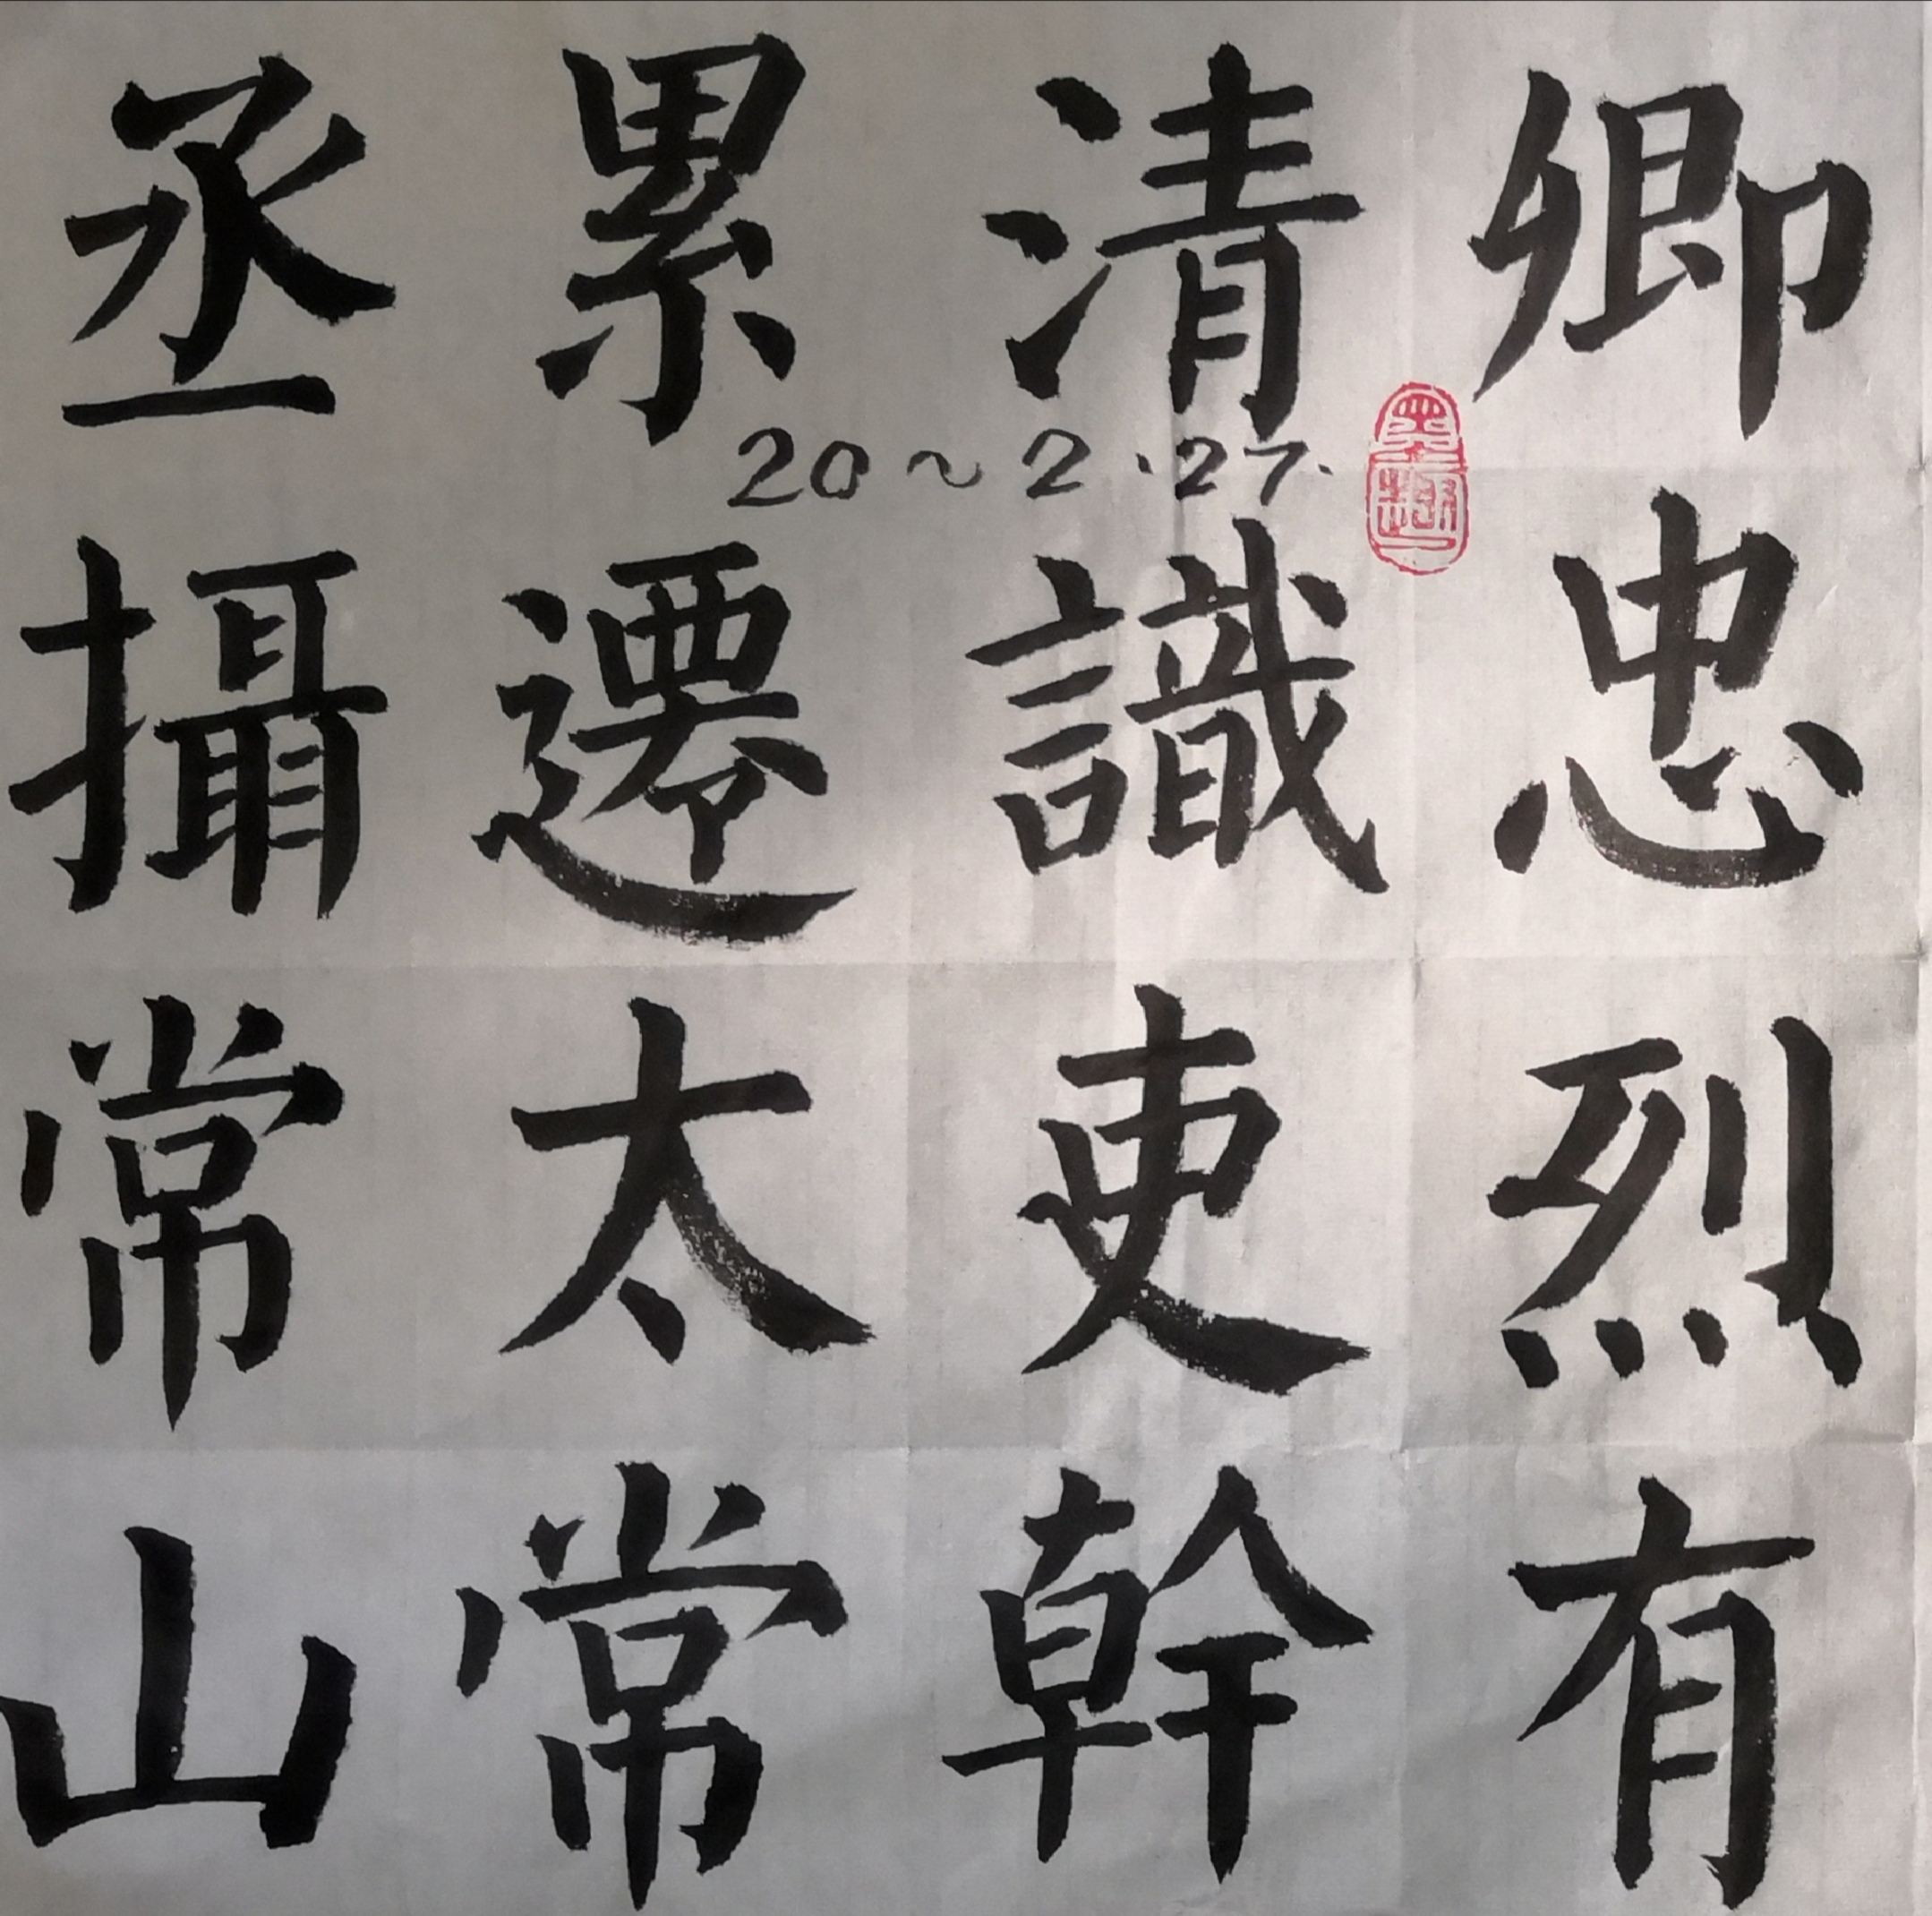 卿忠烈有
清識吏幹
累遷太常
丞攝常山
20~2.27.
墨趣